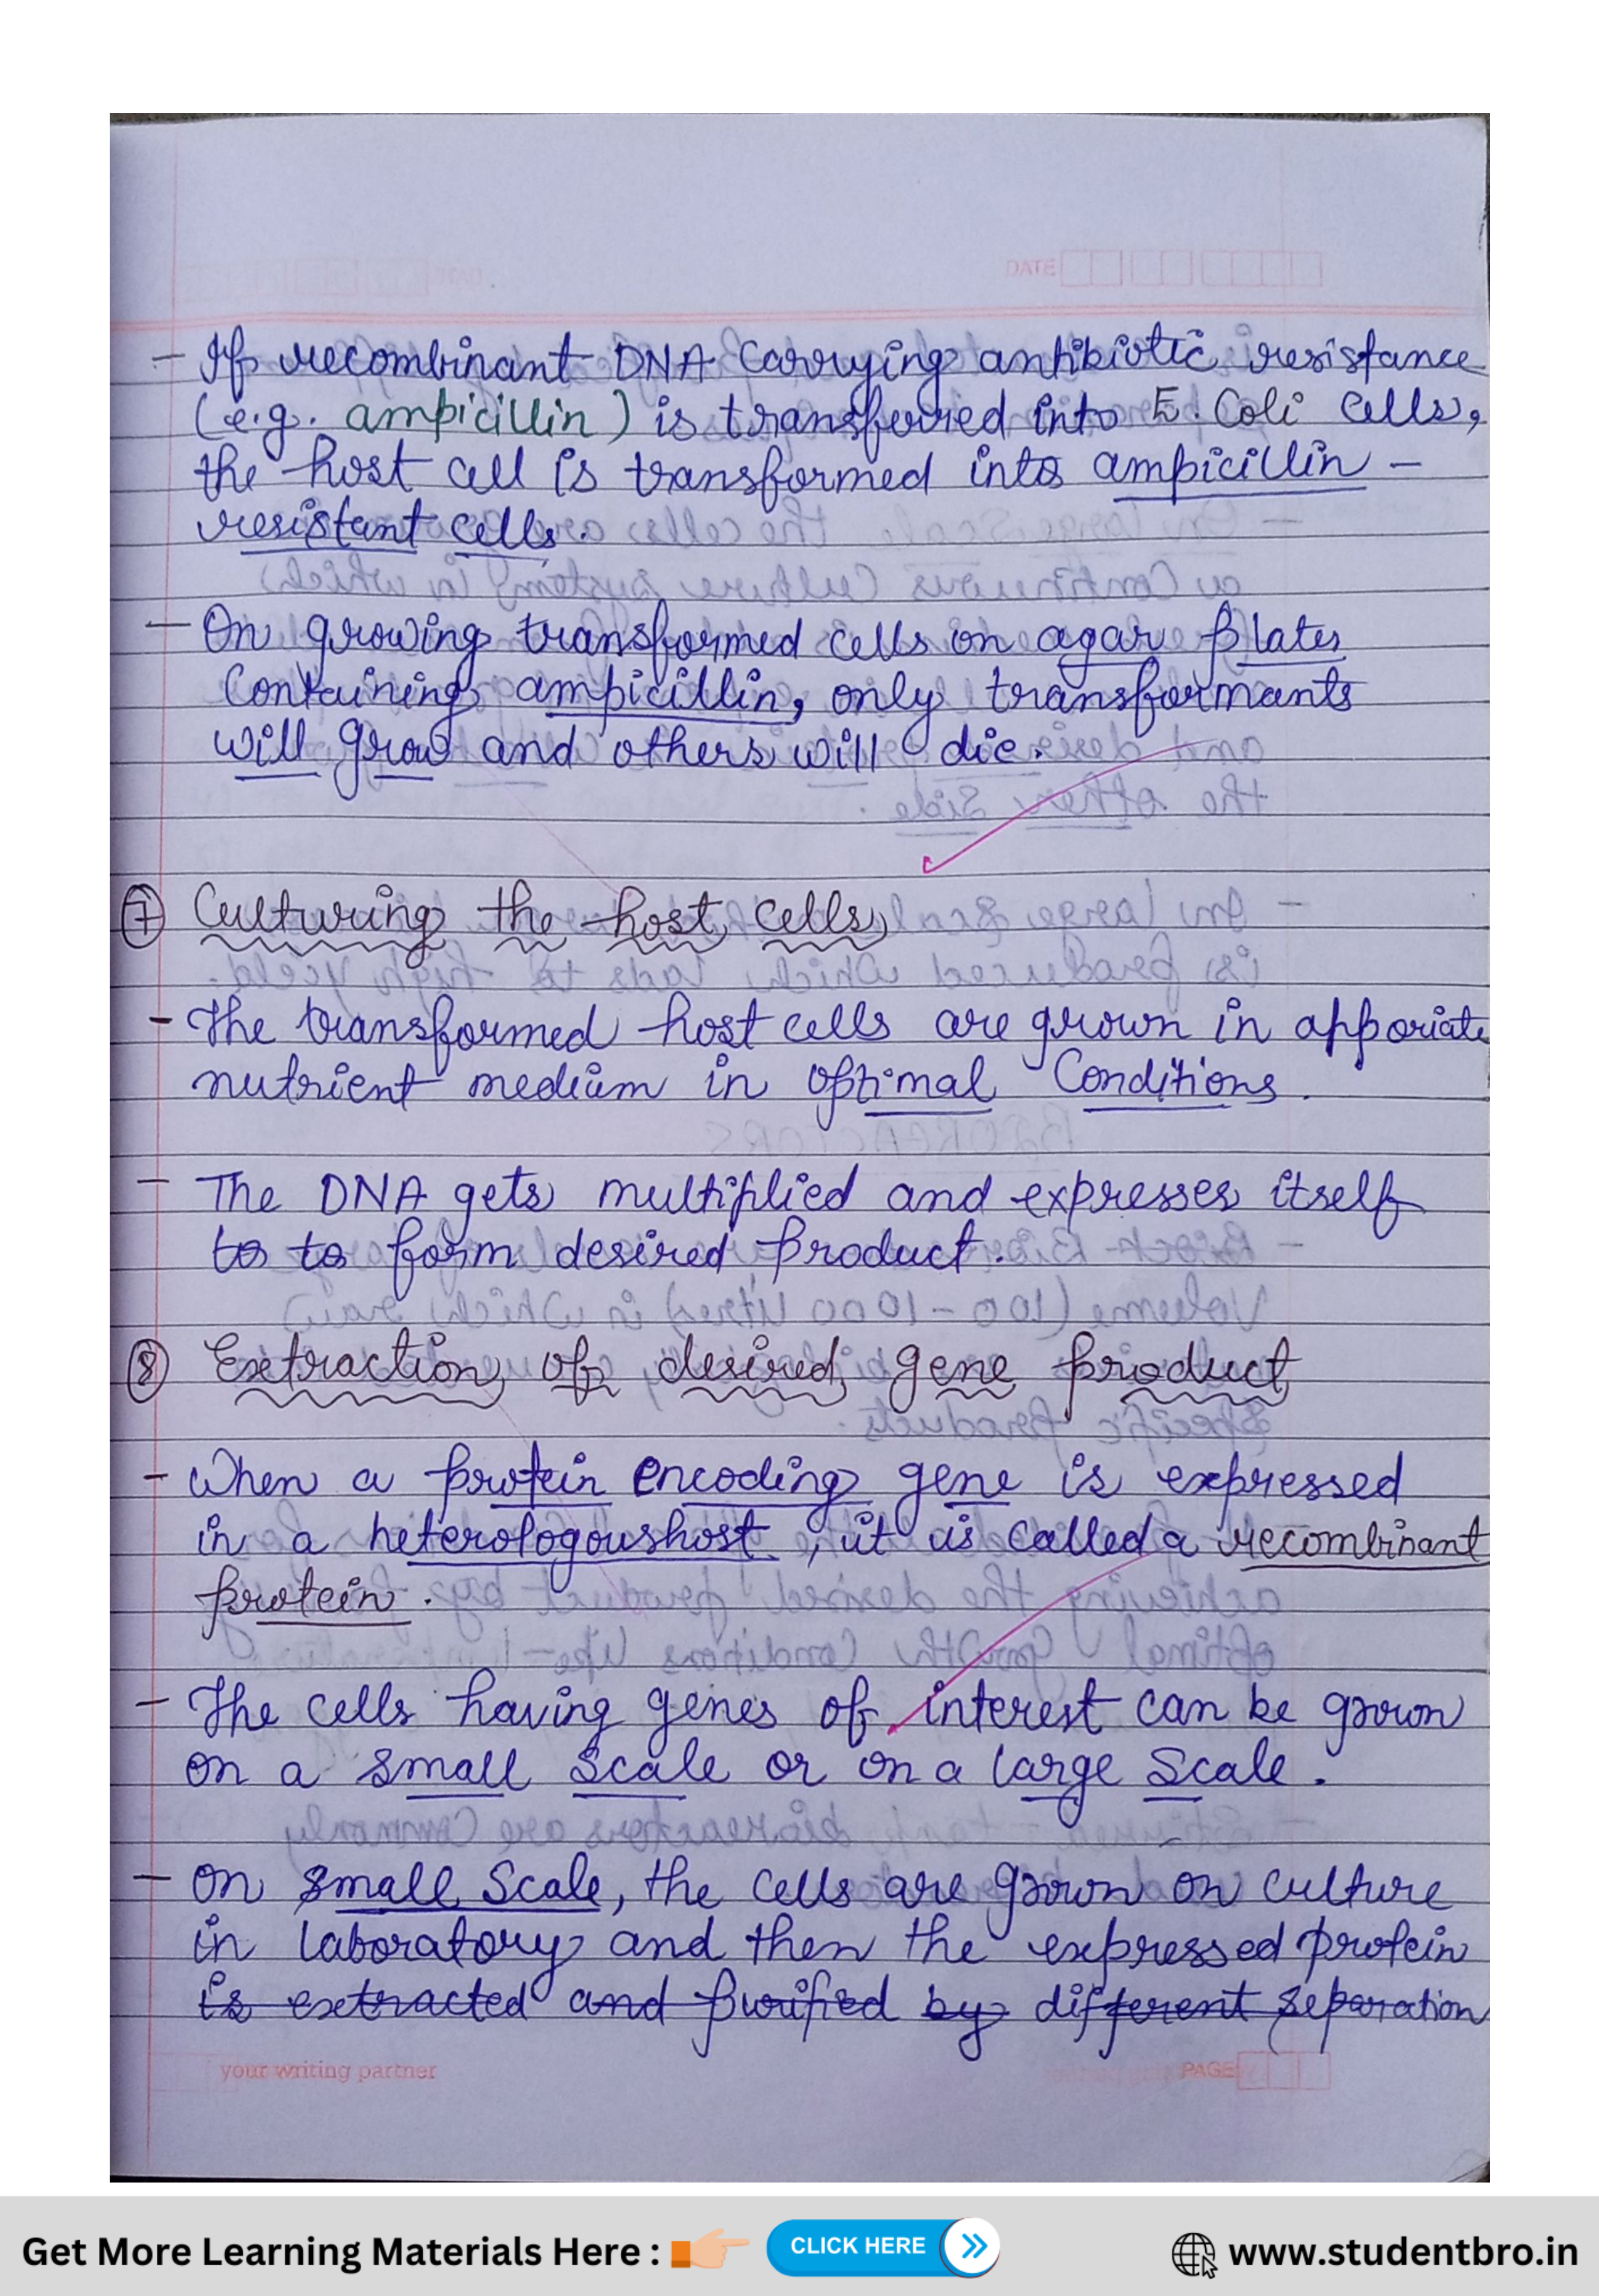 DATE
- If recombinant DNA carrying antibiotic resistance
(e.g. ampicillin) is transferred into E. Coli cells,
the host cell is transformed into ampicillin -
resistant cells.
- On growing transformed cells on agar plates
Containing ampicillin, only transformants
will grow and others will die.
7 Culturing the host cells
- The transformed host cells are grown in apporiate
nutrient medium in optimal Conditions.
- The DNA gets multiplied and expresses itself
to to form desired product.
8 Extraction of desired gene product
- When a protein encoding gene is expressed
in a heterologoushost, it is called a recombinant
protein.
- The cells having genes of interest can be grown
on a small scale or on a large scale.
- On small scale, the cells are grown on culture
in laboratory and then the expressed protein
is extracted and purified by different separation
your writing partner
PAGE
Get More Learning Materials Here :
CLICK HERE
www.studentbro.in